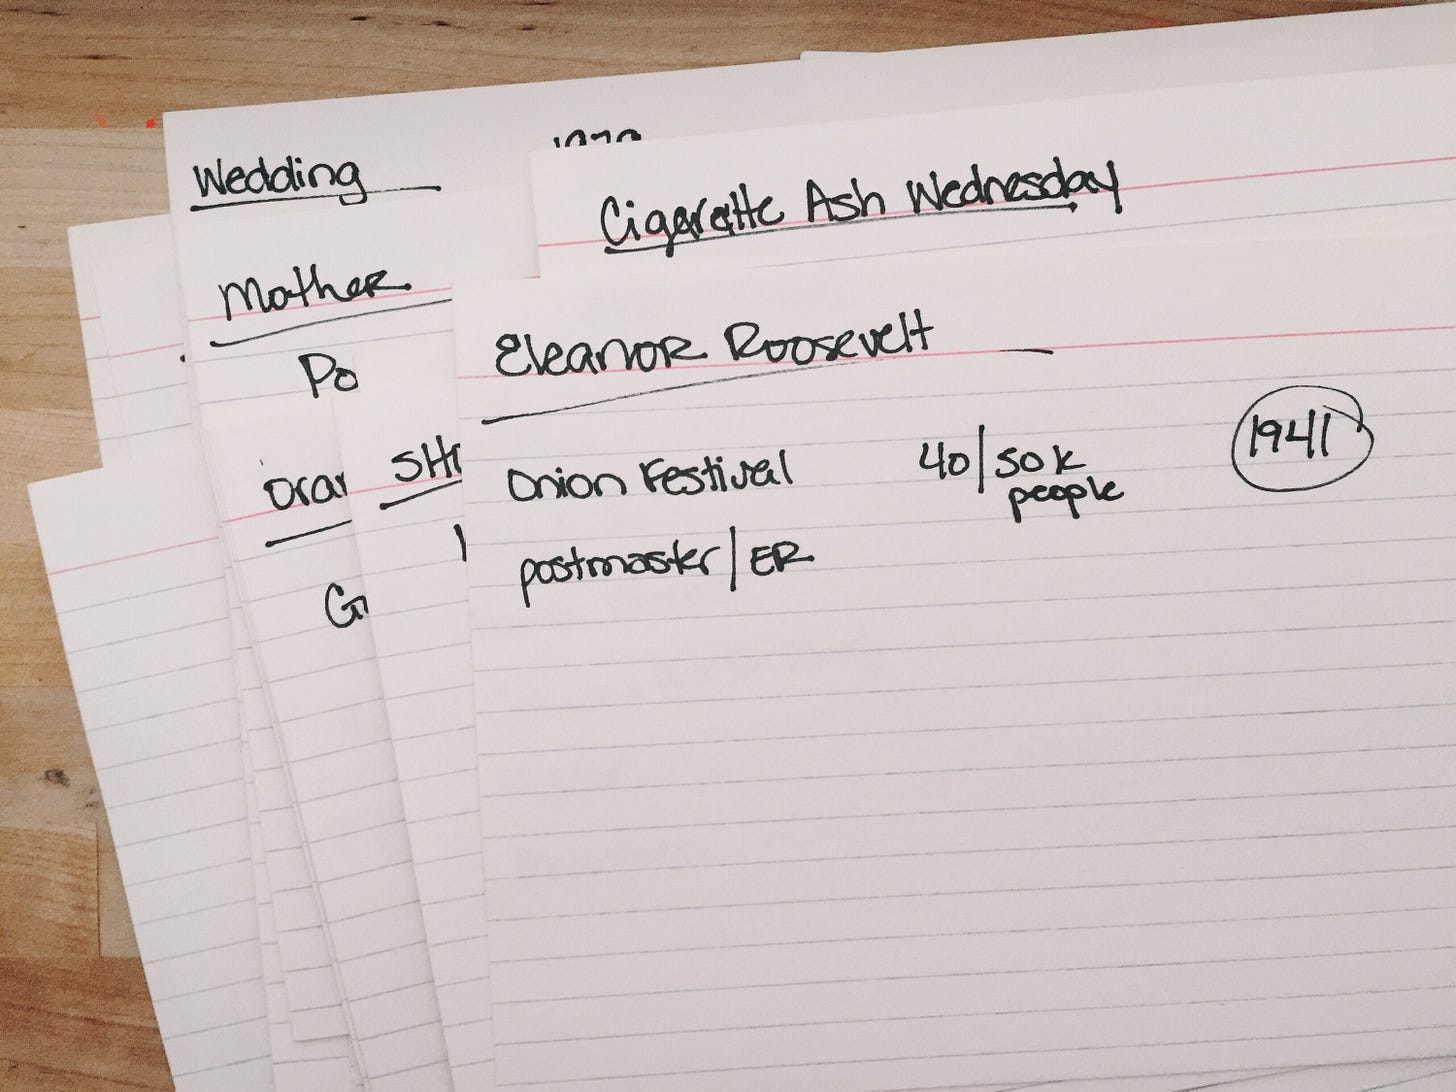 Wedding
Cigarette Ash Wednesday
Mother
Po
Eleanor Roosevelt
SH
Onion Festival 40/50K people
1941
postmaster/ER
G